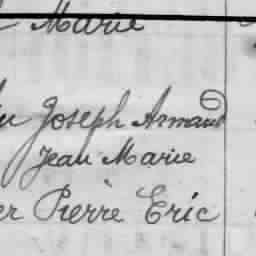 Marie
Joseph Armand
Jean Marie
er Pierre Eric